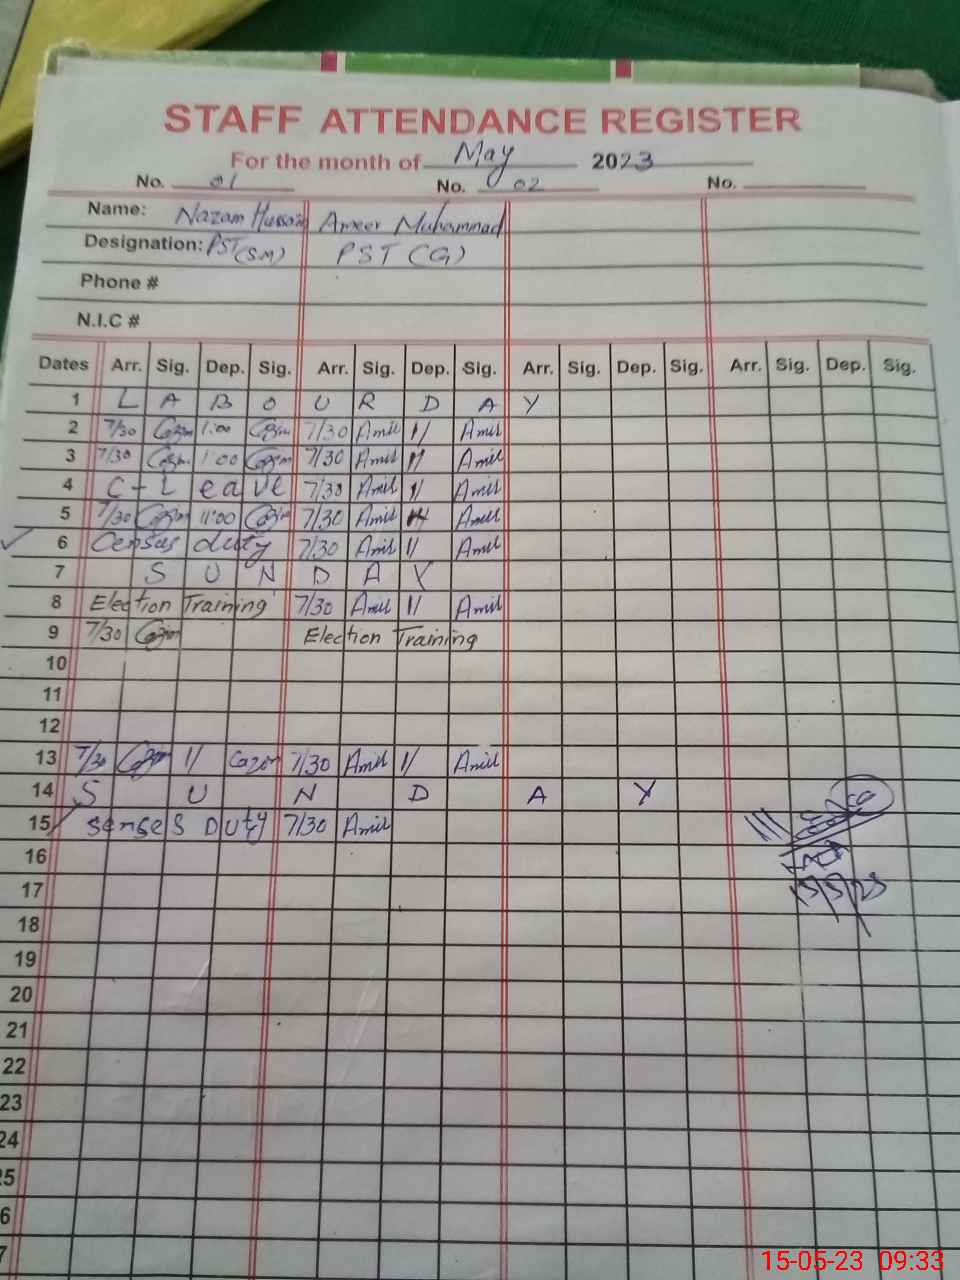 STAFF ATTENDANCE REGISTER
For the month of May 2023
No. 01 No. 02 No.
Name: Nazam Hussain Ameer Muhammad
Designation: PST(SM) PST (G)
Phone #
N.I.C #
Dates Arr. Sig. Dep. Sig. Arr. Sig. Dep. Sig. Arr. Sig. Dep. Sig. Arr. Sig. Dep. Sig.
1 L A B O U R D A Y
2 7/30 1:00 7/30 Amil 11 Amil
3 7/30 1:00 7/30 Amil 11 Amil
4 C-Leave 7/30 Amil 11 Amil
5 7/30 11:00 7/30 Amil 11 Amil
6 Census duty 7/30 Amil 11 Amil
7 S U N D A Y
8 Election Training 7/30 Amil 11 Amil
9 7/30 Election Training
10
11
12
13 7/30 11 7/30 Amil 11 Amil
14 S U N D A Y
15 senses Duty 7/30 Amil
16
17
18
19
20
21
22
23
24
25
6
7
15-05-23 09:33